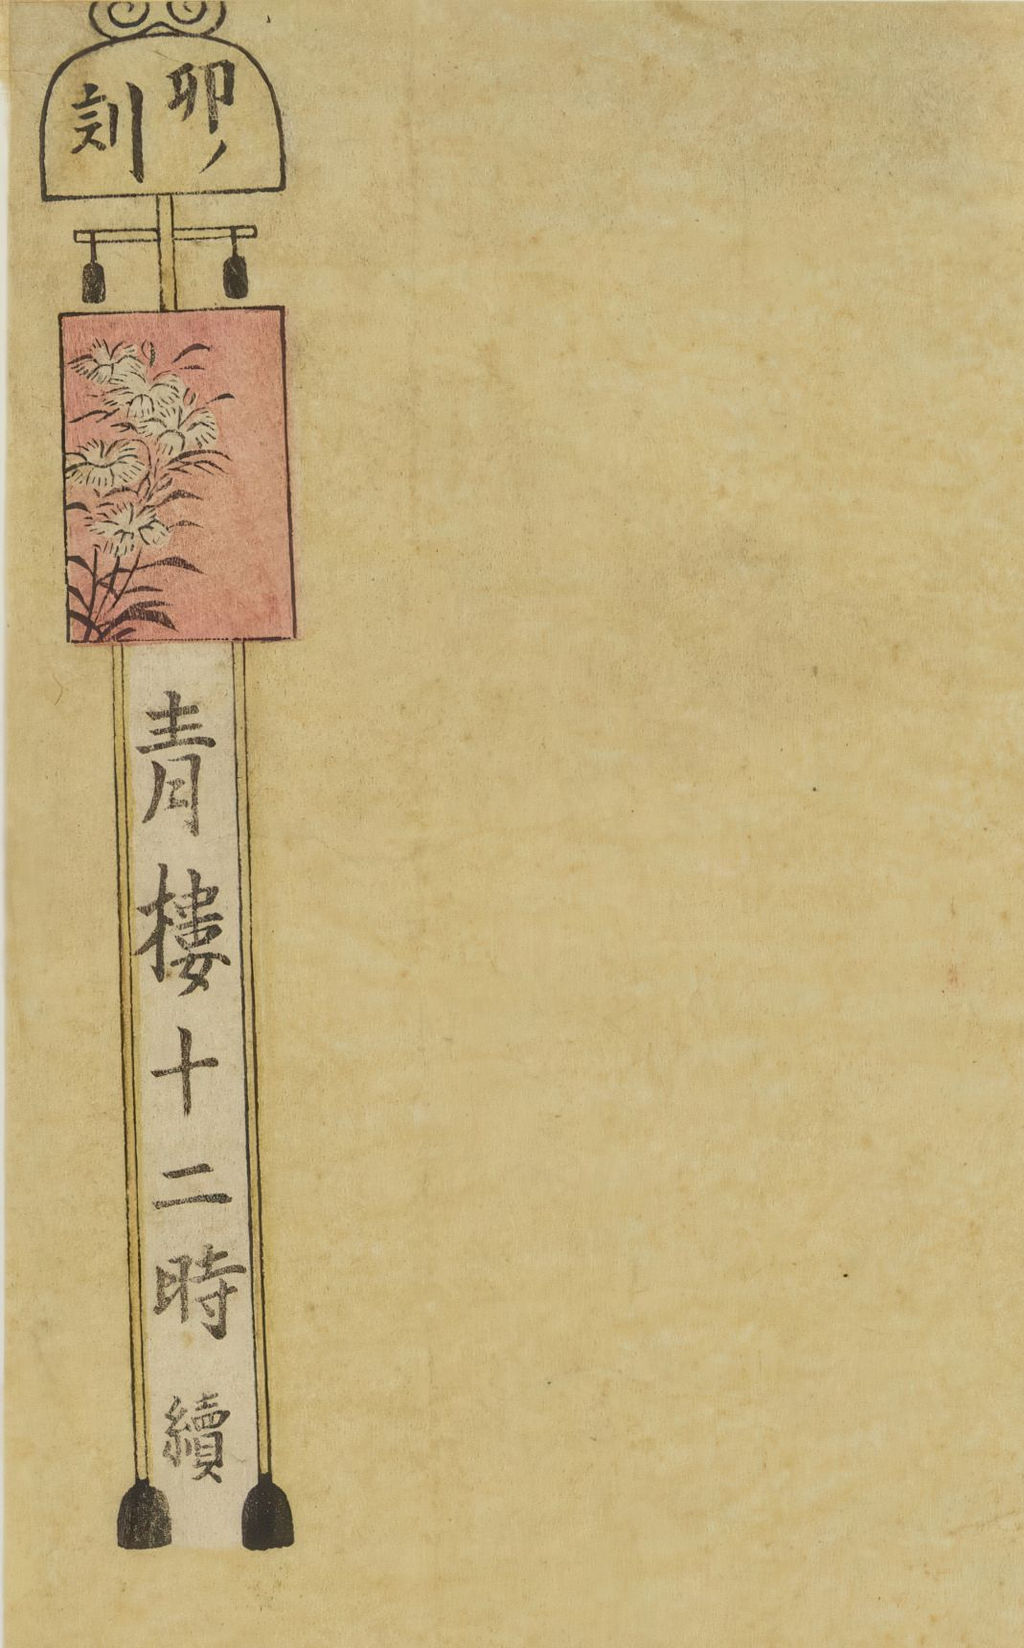 卯ノ
刻
青樓十二時
續